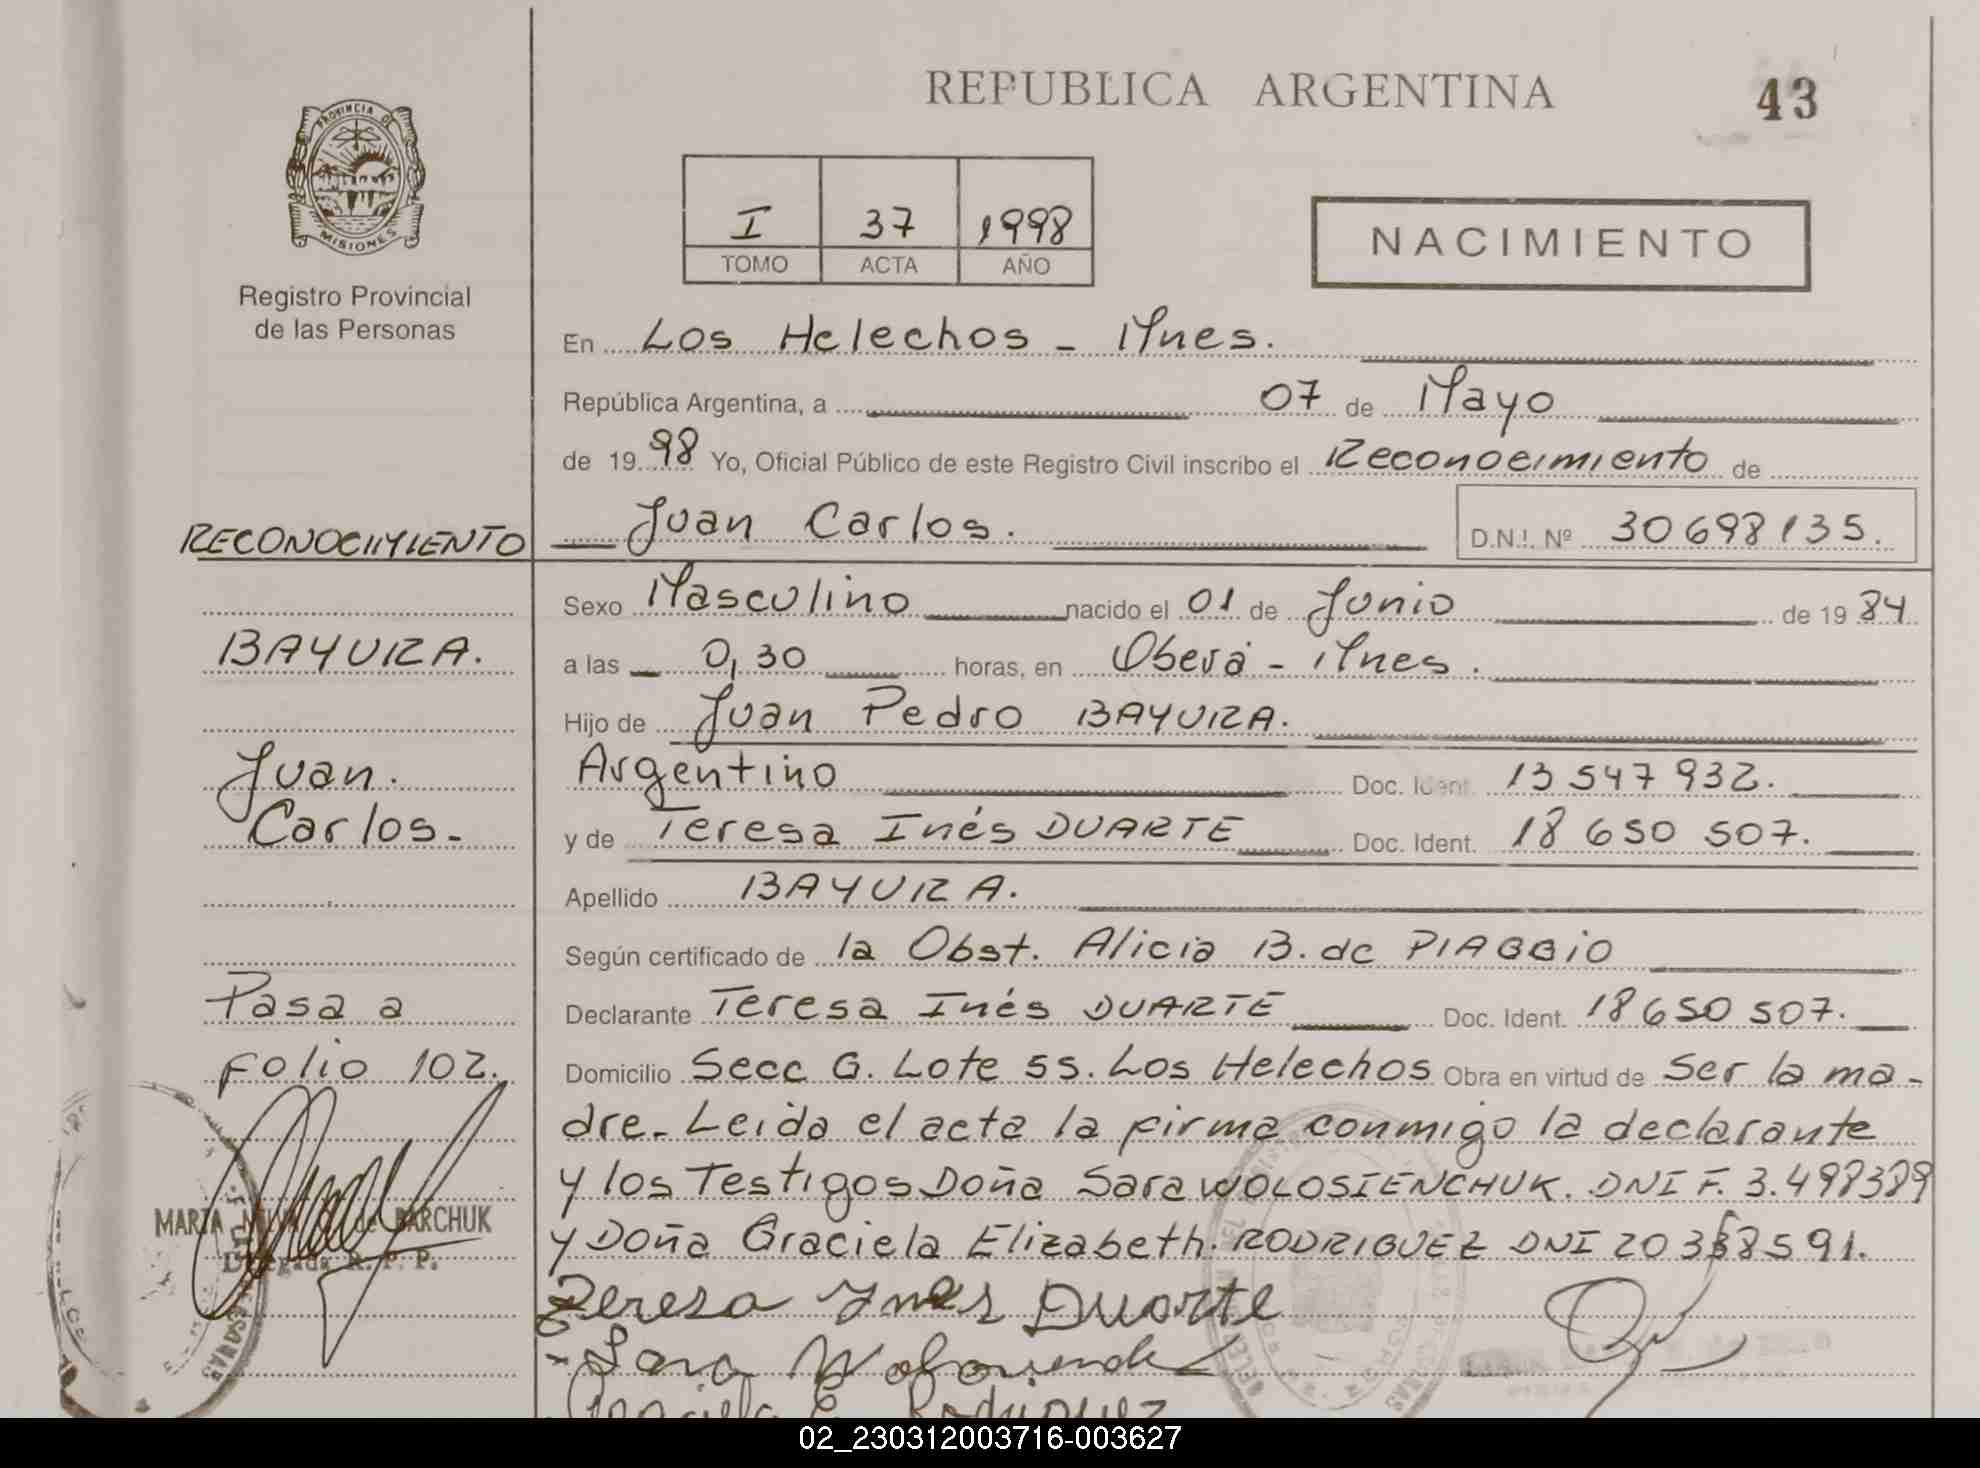 REPUBLICA ARGENTINA
43
PROVINCIA DE
MISIONES
Registro Provincial
de las Personas
I 37 1998
TOMO ACTA AÑO
NACIMIENTO
En Los Helechos - Mnes.
República Argentina, a 07 de Mayo
de 1998 Yo, Oficial Público de este Registro Civil inscribo el Reconocimiento de
Juan Carlos. D.N.I. Nº 30698135.
RECONOCIMIENTO
Sexo Masculino nacido el 01 de Junio de 1984
BAYURA.
a las 0,30 horas, en Oberá - Mnes.
Hijo de Juan Pedro BAYURA.
Juan.
Argentino Doc. Ident. 13547932.
Carlos-
y de Teresa Inés DUARTE Doc. Ident. 18 650 507.
Apellido BAYURA.
Según certificado de la Obst. Alicia B. de PIAGGIO
Pasa a
Declarante Teresa Inés DUARTE Doc. Ident. 18650507.
Folio 102.
Domicilio Secc G. Lote 55. Los Helechos Obra en virtud de ser la ma-
dre. Leida el acta la firma conmigo la declarante
y los Testigos Doña Sara WOLOSIENCHUK. DNI F. 3.498389
y Doña Graciela Elizabeth. RODRIGUEZ DNI
MARIA de BARCHUK
Delegada R. P. P.
Teresa Ines Duarte
Sara
Graciela E. Rodriguez
02_230312003716-003627